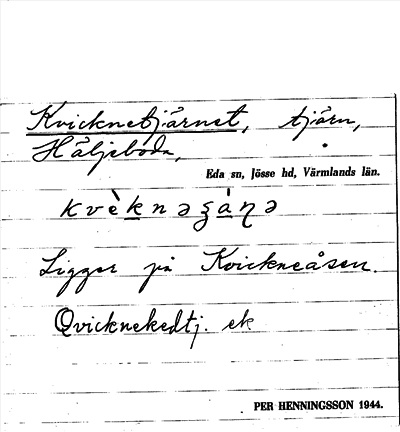 Kvicknetjärnet, tjärn,
Häljeboda,
Eda sn, Jösse hd, Värmlands län.
Ligger på Kvickneåsen.
Qvicknekedtj. ek
PER HENNINGSSON 1944.